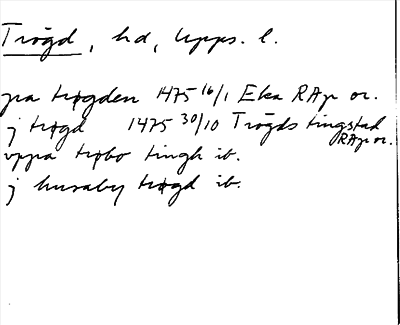 Trögd, hd, Upps. l.
pa trøgden 1475 16/1 Eka RAp or.
j trøgd 1475 30/10 Trögds tingstad
RAp or.
vppa trøbo tingh ib.
j husaby trøgd ib.